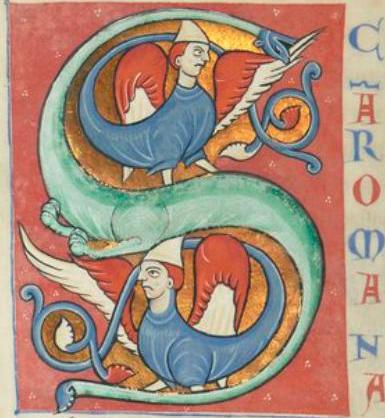 SCÃROMANA